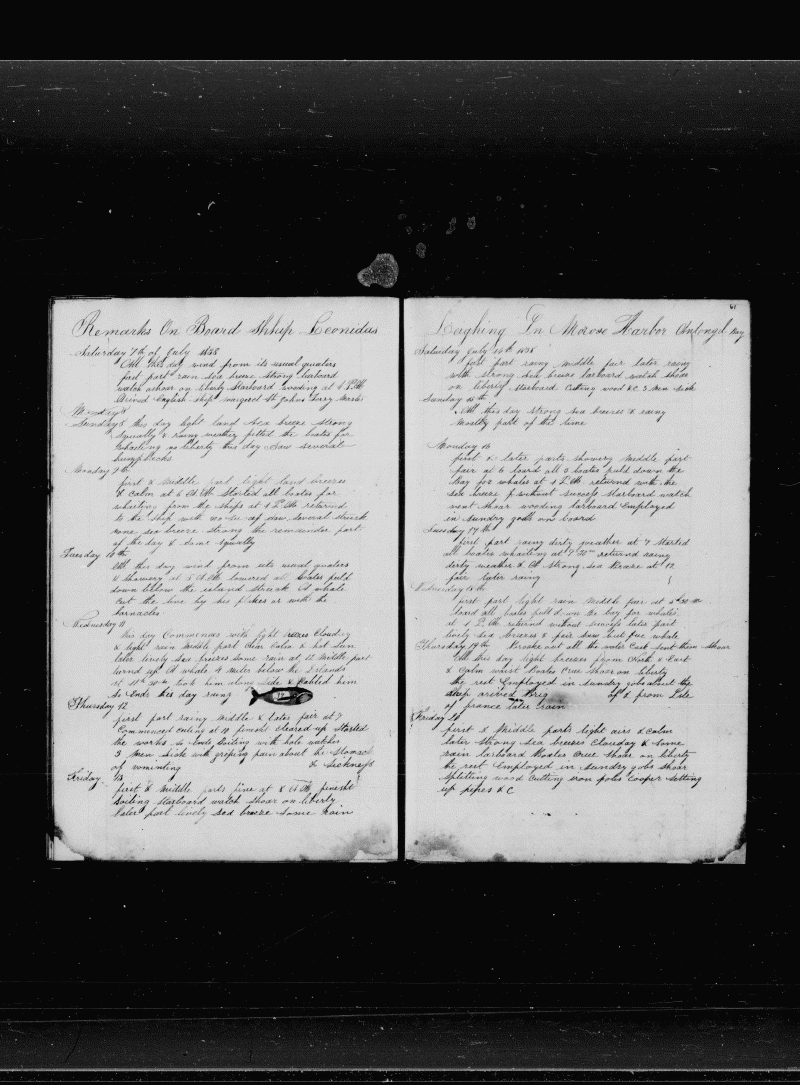 Remarks On Board Shhip Leonidas
Saturday 7th of July 1838
All this day wind from its usual quaters
first part rain sea breeze strong larboard
watch ashoar on liberty Starboard wooding at 1 P.M.
Arived English ship margaret St Johns
Sunday 8 this day light land Sea breeze strong
Squally & rainy weather fitted the boates for
whaeling no liberty this day Saw several
humpbacks
Monday 9th
first & middle part light land breezes
& calm at 6 A.M. Started all boates for
whaeling from the ships at 1 P.M. returned
to the ship with no saw several struck
none sea breeze strong the remainder part
of the day & some squally
Tuesday 10th
All this day wind from its usual quaters
& showery at 5 A.M. lowered all boates puld
down below the island struck A whale
cut the line by his flukes or with the
barnacles
Wednesday 11
This day Commences with light breezes Cloudy
& light rain middle part Clear Calm & hot sun
later lively sea breezes some rain at 12 Middle part
turnd up A whale 4 miles below the Islands
at took him along side & Cabled him
So Ends this day rainy
Thursday 12
first part rainy middle & later fair at 7
Commenced cuting at 10 finesht cleared up Started
the works So Ends boiling with hole watches
3 Men sick with griping pain about the Stomac
of vomiting & Sickness
Friday 13
first & middle parts fine at 8 A.M. finesht
boiling Starboard watch shoar on liberty
later part lively sea breeze some rain
61
Laighing In Harbor Antongel Bay
Saturday July 14th 1838
first part rainy middle fair later rainy
with strong sea breeze larboard watch shoar
on liberty Starboard Cutting wood &C 3 Men sick
Sunday 15th
All this day strong sea breeze & rainy
mostly part of the time
Monday 16
first & later parts showery middle part
fair at 6 loard all 8 boates puld down the
bay for whales at 1 P.M. returned with the
sea breeze & without success starboard watch
went shoar wooding larboard Employed
in sundry gobs on board
Tuesday 17th
first part rainy dirty weather at 7 Started
all boates whaeling at returned rainy
dirty weather & A strong sea breaze at 12
fair later rainy
Wednesday 18th
first part light rain middle fair at
loard all boates puld down the bay for whales
at 1 P.M. returnd without success later part
lively sea breezes & fair saw but few whale
Thursday 19th Broake out all the water Cask sent them Shoar
All this day light breezes from North & East
& Calm waist Boates Crue Shoar on liberty
the rest Employed in sundry gobs about the
ship arived Brig of & from Isle
of france later rain
Friday 20
first & Middle parts light airs & calm
later Strong Sea breezes Clouday & Some
rain larboard Boates Crue Shoar on liberty
the rest Employed in sundry gobs shoar
splitting wood cutting iron poles Cooper setting
up pipes &C